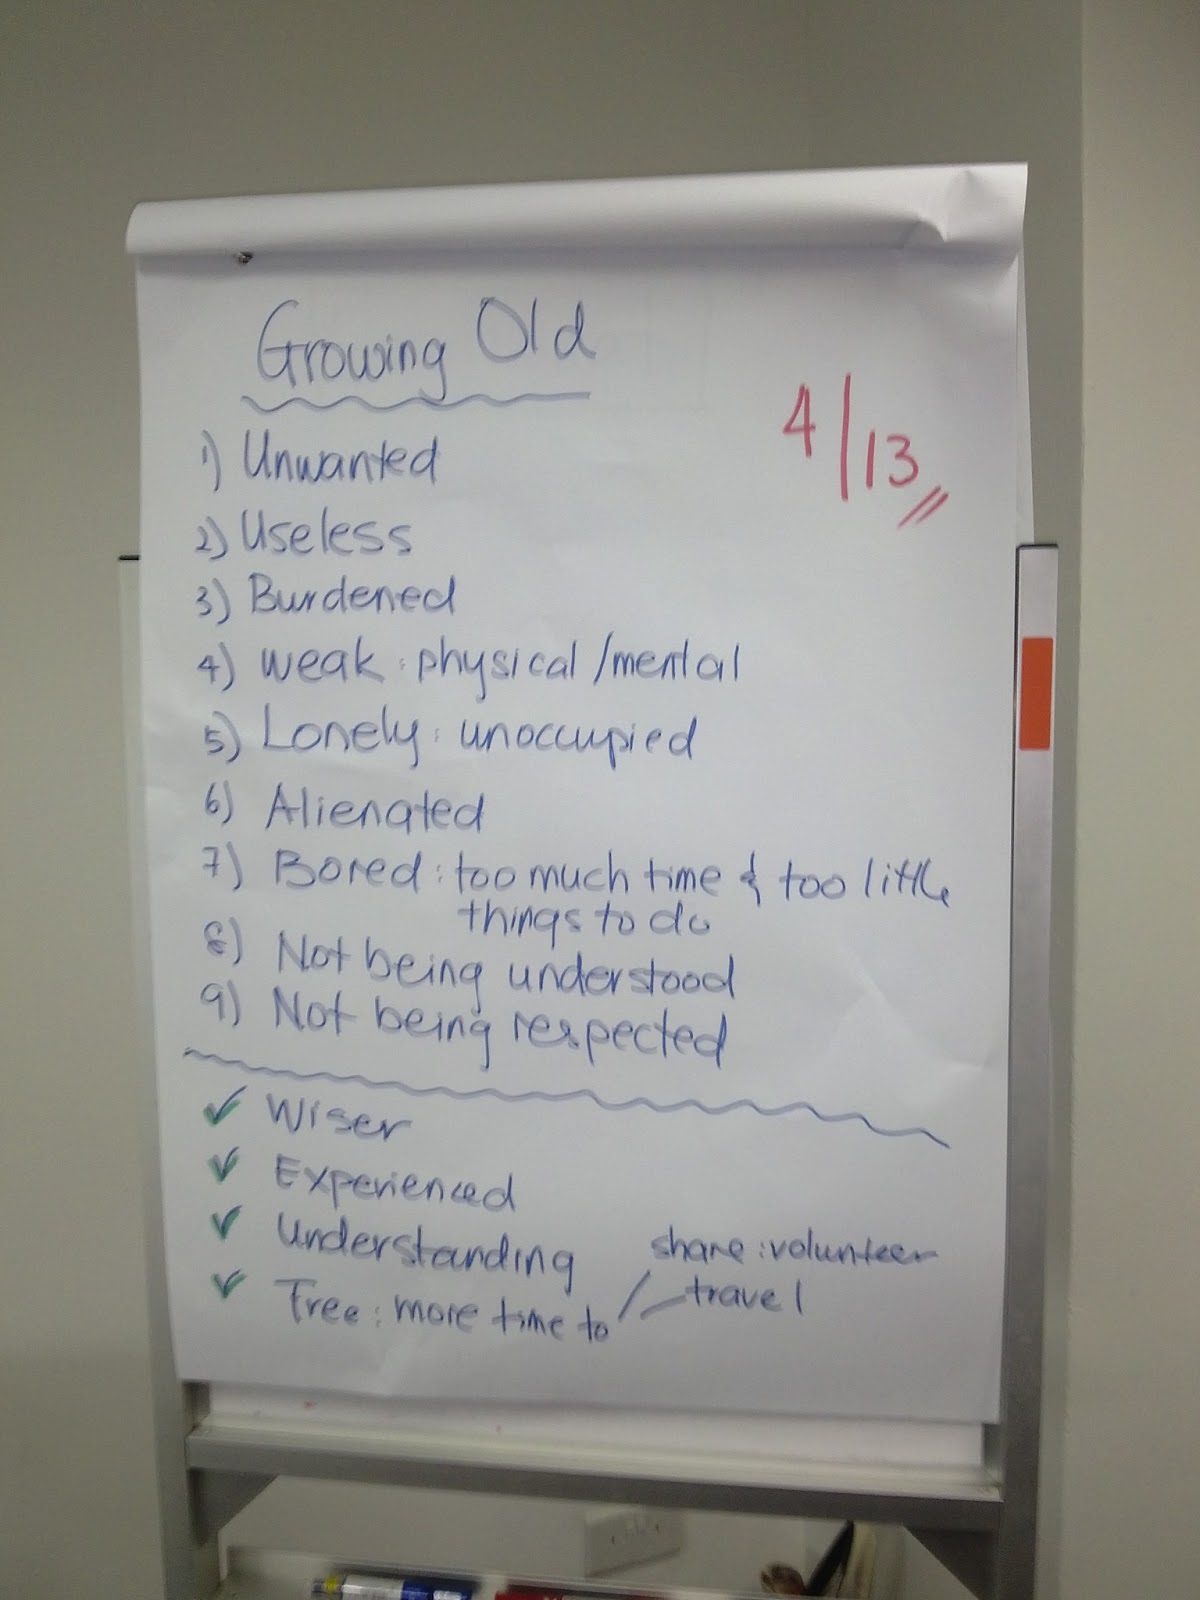 Growing Old
4/13
1) Unwanted
2) Useless
3) Burdened
4) weak : physical /mental
5) Lonely : unoccupied
6) Alienated
7) Bored : too much time & too little
things to do
8) Not being understood
9) Not being respected
✓ Wiser
✓ Experienced
✓ Understanding
share : volunteer
✓ Free : more time to / – travel